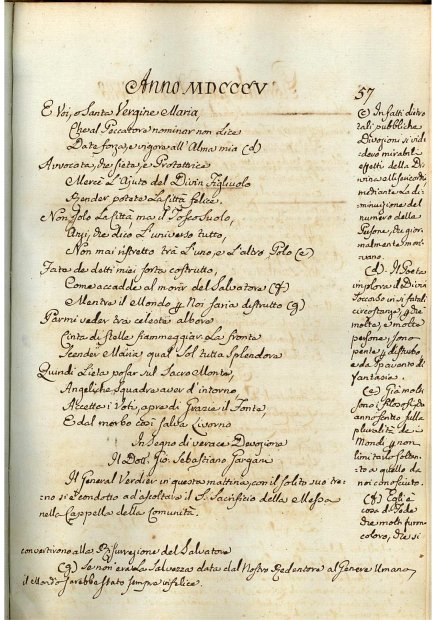 Anno MDCCCV
57
E Voi, o Santa Vergine Maria,
Che al Peccatore nominar non lice
Date forza, e vigore all'Alma mia (d)
Avvocata, che siete, e Protettrice
Mercè l'Ajuto del Divin Figliuolo
Render potete la Città felice.
Non solo la Città ma il Tosco suolo,
Anzi, che dico l'universo tutto,
Non mai ristretto trà l'uno, e l'altro Polo (e)
Fate de detti miei sorta costrutto,
Come accadde al morir del Salvatore (f)
Mentre il Mondo p Noi saria distrutto (g)
Parmi veder trà celeste albore
Cinta di stelle fiammeggiar la fronte
Scender Maria qual Sol tutta Splendore
Quindi lieta posar sul Sacro Monte,
Angeliche squadre aver d'intorno
Accetta i Voti, apre di Grazie il Fonte,
E dal morbo così salva Livorno
In Segno di verace Devozione
Il Dott. Gio. Sebastiano Gargani
Il General Verdier in questa mattina, con il solito suo tre-
no si è condotto ad ascoltare il S. Sacrifizio della Messa
nella Cappella della Comunità.
(c) In fatti dietro
tali pubbliche
Divozioni si vid-
dero mirabili
effetti della Di-
vina Misericordia
mediante la di-
minuzione del
numero delle
Persone, che gior-
nalmente mori-
vano.
(d) Il Poeta
implora il Divin
Soccorso in sì fatali
circostanze, p che
molte, e molte
persone, sono
perite p disturbo
e da Spavento di
Fantasia.
(e) Già molti
sono i filosofi, che
anno scritto sulla
pluralità de
Mondi p non
limitarlo soltan-
to a quello da
noi conosciuto.
(f) Egli è
cosa di Fede
che molti furm-
coloro, che si
convertirono alla Resurrezione del Salvatore
(g) Se non era la Salvezza data dal Nostro Redentore al Genere Umano,
il Mondo sarebbe stato sempre infelice.